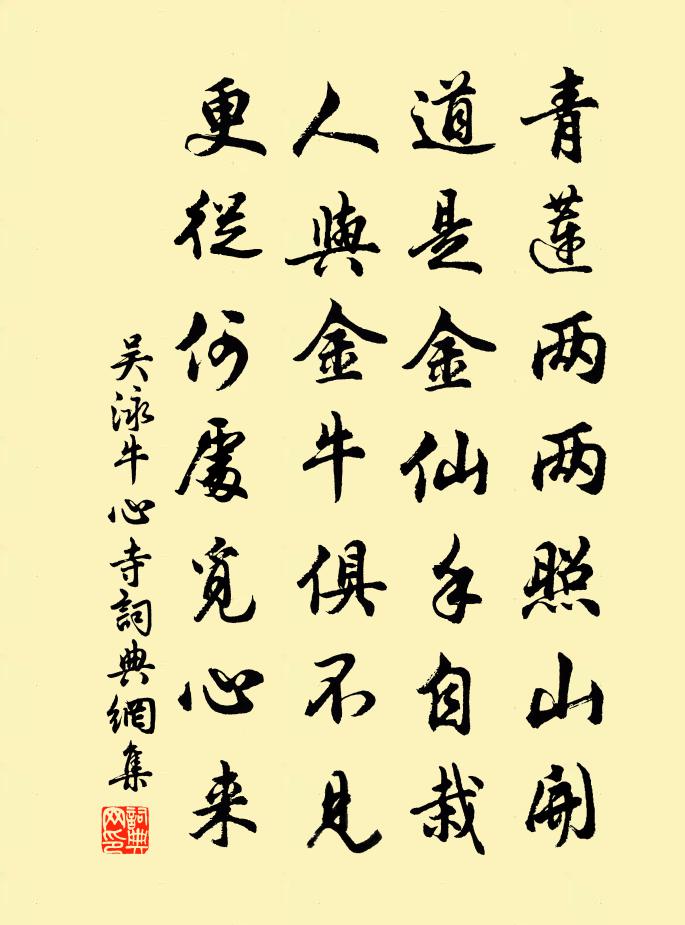 青蓮两两照山開
道是金仙手自栽
人與金牛俱不見
更從何處覓心来
吴泳牛心寺詞典網集
詞典網印